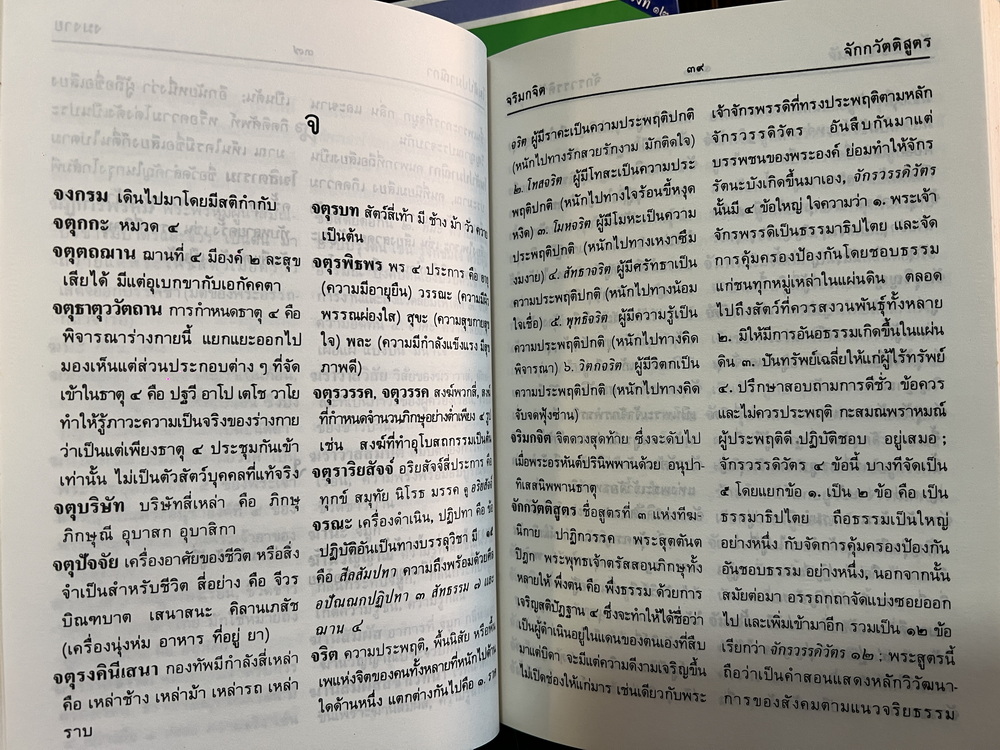 จ
จงกรม เดินไปมาโดยมีสติกำกับ
จตุกกะ หมวด ๔
จตุตถฌาน ฌานที่ ๔ มีองค์ ๒ ละสุข
เสียได้ มีแต่อุเบกขากับเอกัคคตา
จตุธาตุววัตถาน การกำหนดธาตุ ๔ คือ
พิจารณาร่างกายนี้ แยกแยะออกไป
มองเห็นแต่ส่วนประกอบต่าง ๆ ที่จัด
เข้าในธาตุ ๔ คือ ปฐวี อาโป เตโช วาโย
ทำให้รู้ภาวะความเป็นจริงของร่างกาย
ว่าเป็นแต่เพียงธาตุ ๔ ประชุมกันเข้า
เท่านั้น ไม่เป็นตัวสัตว์บุคคลที่แท้จริง
จตุบริษัท บริษัทสี่เหล่า คือ ภิกษุ
ภิกษุณี อุบาสก อุบาสิกา
จตุปัจจัย เครื่องอาศัยของชีวิต หรือสิ่ง
จำเป็นสำหรับชีวิต สี่อย่าง คือ จีวร
บิณฑบาต เสนาสนะ คิลานเภสัช
(เครื่องนุ่งห่ม อาหาร ที่อยู่ ยา)
จตุรงคินีเสนา กองทัพมีกำลังสี่เหล่า
คือ เหล่าช้าง เหล่าม้า เหล่ารถ เหล่า
ราบ
จตุรบท สัตว์สี่เท้า มี ช้าง ม้า วัว ควาย
เป็นต้น
จตุรพิธพร พร ๔ ประการ คือ อายุ
(ความมีอายุยืน) วรรณะ (ความมีผิว
พรรณผ่องใส) สุขะ (ความสุขกายสุข
ใจ) พละ (ความมีกำลังแข็งแรง มีสุข
ภาพดี)
จตุรวรรค, จตุวรรค สงฆ์พวกสี่, สงฆ์
ที่กำหนดจำนวนภิกษุอย่างต่ำเพียง ๔ รูป
เช่น สงฆ์ที่ทำอุโบสถกรรมเป็นต้น
จตุราริยสัจจ์ อริยสัจจ์สี่ประการ คือ
ทุกข์ สมุทัย นิโรธ มรรค ดู อริยสัจจ์
จรณะ เครื่องดำเนิน, ปฏิปทา คือ ข้อ
ปฏิบัติอันเป็นทางบรรลุวิชา มี ๑๕
คือ สีลสัมปทา ความถึงพร้อมด้วยศีล
อปัณณกปฏิปทา ๓ สัทธรรม ๗ และ
ฌาน ๔
จริต ความประพฤติ, พื้นนิสัย หรือพื้น
เพแห่งจิตของคนทั้งหลายที่หนักไปด้าน
ใดด้านหนึ่ง แตกต่างกันไปคือ ๑. ราค
จริมกจิต
๓๙
จักกวัตติสูตร
จริต ผู้มีราคะเป็นความประพฤติปกติ
(หนักไปทางรักสวยรักงาม มักติดใจ)
๒. โทสจริต ผู้มีโทสะเป็นความประ
พฤติปกติ (หนักไปทางใจร้อนขี้หงุด
หงิด) ๓. โมหจริต ผู้มีโมหะเป็นความ
ประพฤติปกติ (หนักไปทางเหงาซึม
งมงาย) ๔. สัทธาจริต ผู้มีศรัทธาเป็น
ความประพฤติปกติ (หนักไปทางน้อม
ใจเชื่อ) ๕. พุทธิจริต ผู้มีความรู้เป็น
ความประพฤติปกติ (หนักไปทางคิด
พิจารณา) ๖. วิตกจริต ผู้มีวิตกเป็น
ความประพฤติปกติ (หนักไปทางคิด
จับจดฟุ้งซ่าน)
จริมกจิต จิตดวงสุดท้าย ซึ่งจะดับไป
เมื่อพระอรหันต์ปรินิพพานด้วย อนุปา-
ทิเสสนิพพานธาตุ
จักกวัตติสูตร ชื่อสูตรที่ ๓ แห่งทีฆ-
นิกาย ปาฏิกวรรค พระสุตตันต
ปิฎก พระพุทธเจ้าตรัสสอนภิกษุทั้ง
หลายให้ พึ่งตน คือ พึ่งธรรม ด้วยการ
เจริญสติปัฏฐาน ๔ ซึ่งจะทำให้ได้ชื่อว่า
เป็นผู้ดำเนินอยู่ในแดนของตนเองที่สืบ
มาแต่บิดา จะมีแต่ความดีงามเจริญขึ้น
ไม่เปิดช่องให้แก่มาร เช่นเดียวกับพระ
เจ้าจักรพรรดิที่ทรงประพฤติตามหลัก
จักรวรรดิวัตร อันสืบกันมาแต่
บรรพชนของพระองค์ ย่อมทำให้จักร
รัตนะบังเกิดขึ้นมาเอง, จักรวรรดิวัตร
นั้นมี ๔ ข้อใหญ่ ใจความว่า ๑. พระเจ้า
จักรพรรดิเป็นธรรมาธิปไตย และจัด
การคุ้มครองป้องกันโดยชอบธรรม
แก่ชนทุกหมู่เหล่าในแผ่นดิน ตลอด
ไปถึงสัตว์ที่ควรสงวนพันธุ์ทั้งหลาย
๒. มิให้มีการอันอธรรมเกิดขึ้นในแผ่น
ดิน ๓. ปันทรัพย์เฉลี่ยให้แก่ผู้ไร้ทรัพย์
๔. ปรึกษาสอบถามการดีชั่ว ข้อควร
และไม่ควรประพฤติ กะสมณพราหมณ์
ผู้ประพฤติดี ปฏิบัติชอบ อยู่เสมอ ;
จักรวรรดิวัตร ๔ ข้อนี้ บางทีจัดเป็น
๕ โดยแยกข้อ ๑. เป็น ๒ ข้อ คือ เป็น
ธรรมาธิปไตย ถือธรรมเป็นใหญ่
อย่างหนึ่ง กับจัดการคุ้มครองป้องกัน
อันชอบธรรม อย่างหนึ่ง, นอกจากนั้น
สมัยต่อมา อรรถกถาจัดแบ่งซอยออก
ไป และเพิ่มเข้ามาอีก รวมเป็น ๑๒ ข้อ
เรียกว่า จักรวรรดิวัตร ๑๒ : พระสูตรนี้
ถือว่าเป็นคำสอนแสดงหลักวิวัฒนา-
การของสังคมตามแนวจริยธรรม